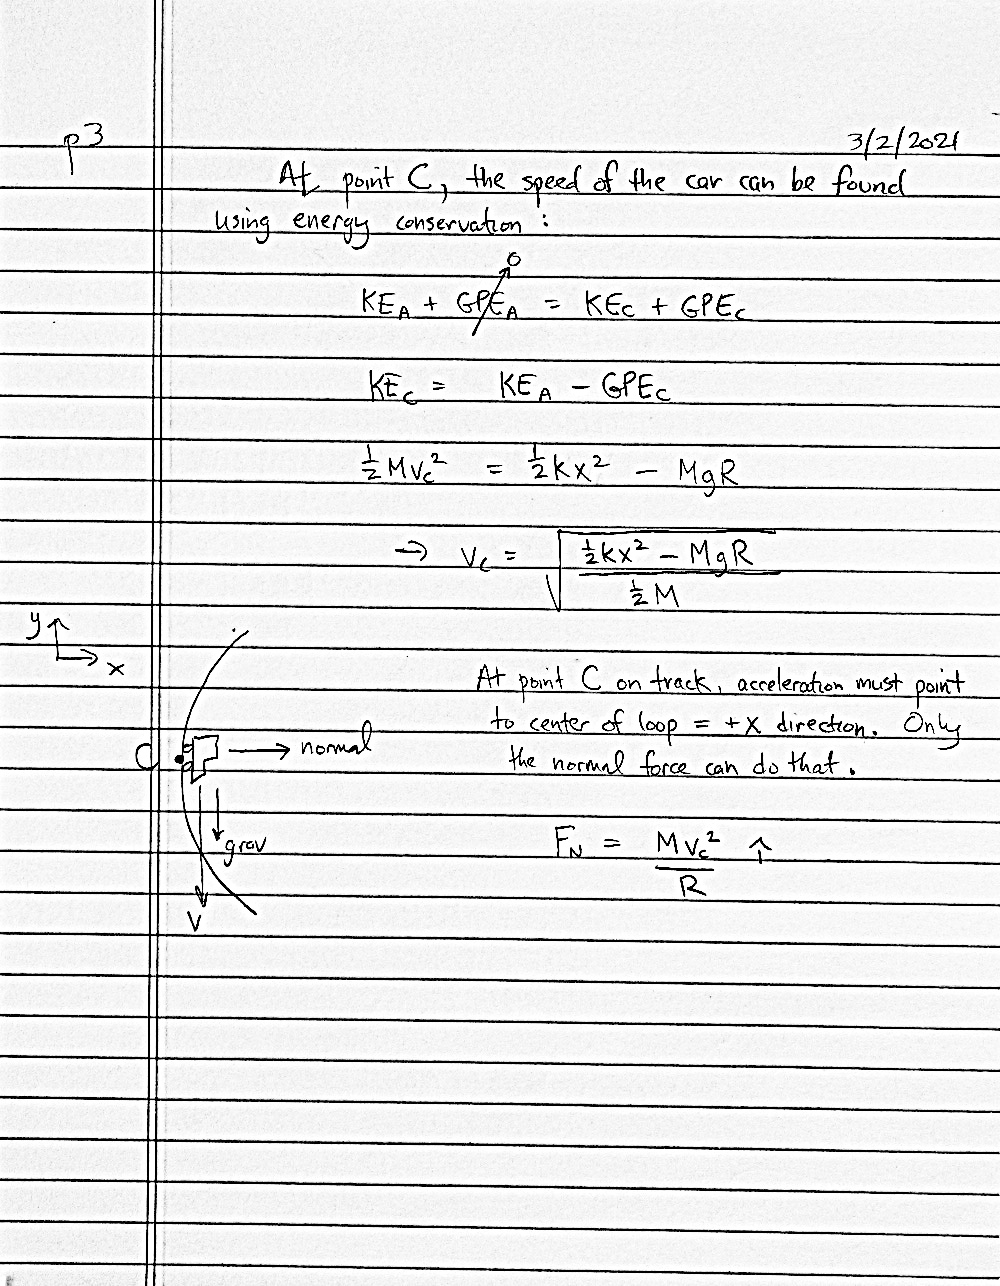 p3
3/2/2021
At point C, the speed of the car can be found
using energy conservation :
0
KE_A + GPE_A = KE_C + GPE_C
KE_C = KE_A − GPE_C
½Mv_c² = ½kx² − MgR
→ v_c = √((½kx² − MgR) / (½M))
y
x
At point C on track, acceleration must point
to center of loop = +x direction. Only
the normal force can do that.
C
normal
grav
v
F_N = Mv_c² / R ↑